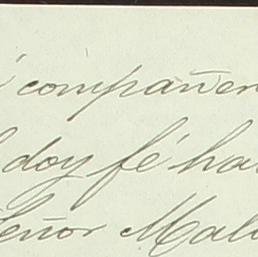 compañer
doy fé ha
Señor Mal